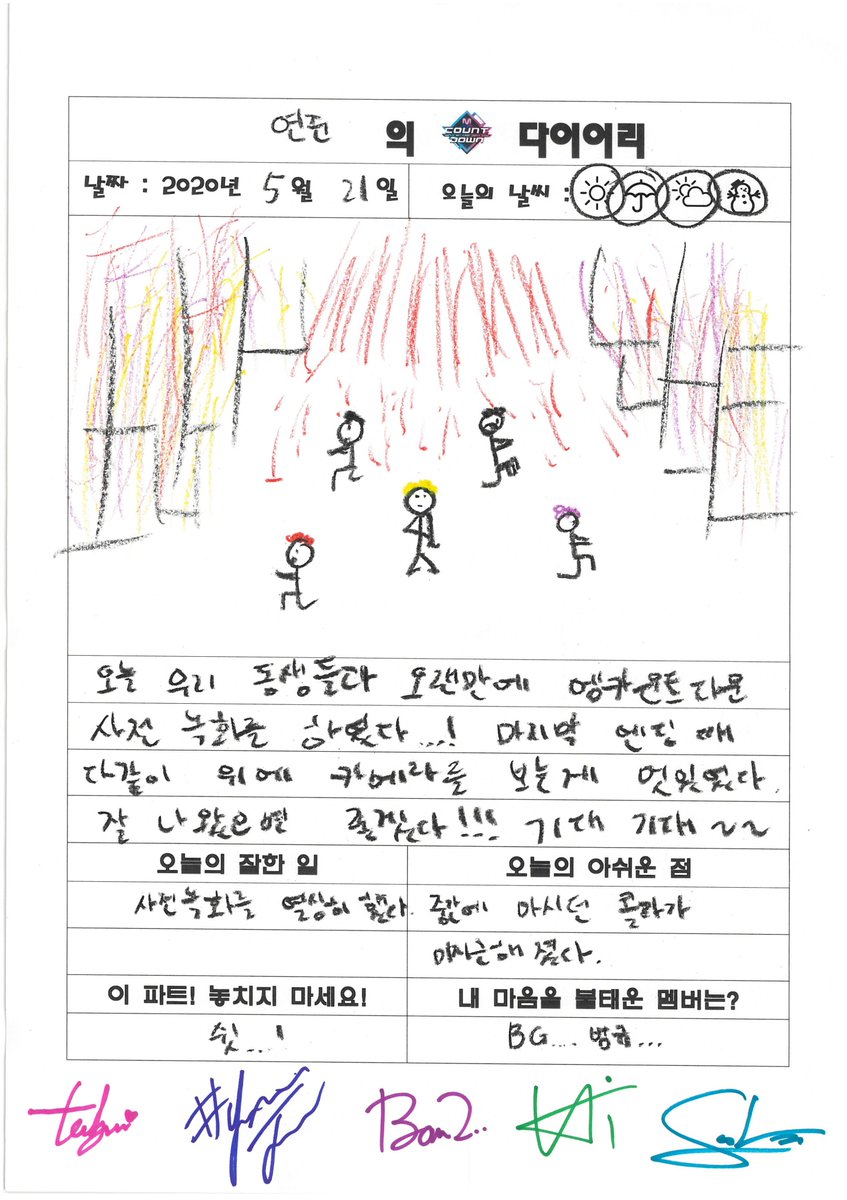 연준 의 M COUNT DOWN 다이어리
날짜 : 2020년 5월 21일 오늘의 날씨 :
오늘 우리 동생들과 오랜만에 엠카운트다운
사전 녹화를 하였다...! 마지막 엔딩 때
다같이 위에 카메라를 보는게 멋있었다.
잘 나왔으면 좋겠다!!! 기대 기대 ~~
오늘의 잘한 일
오늘의 아쉬운 점
사전녹화를 열심히 했다.
중간에 마시던 콜라가
미지근해 졌다.
이 파트! 놓치지 마세요!
내 마음을 불태운 멤버는?
쉿...!
BG.... 범규...